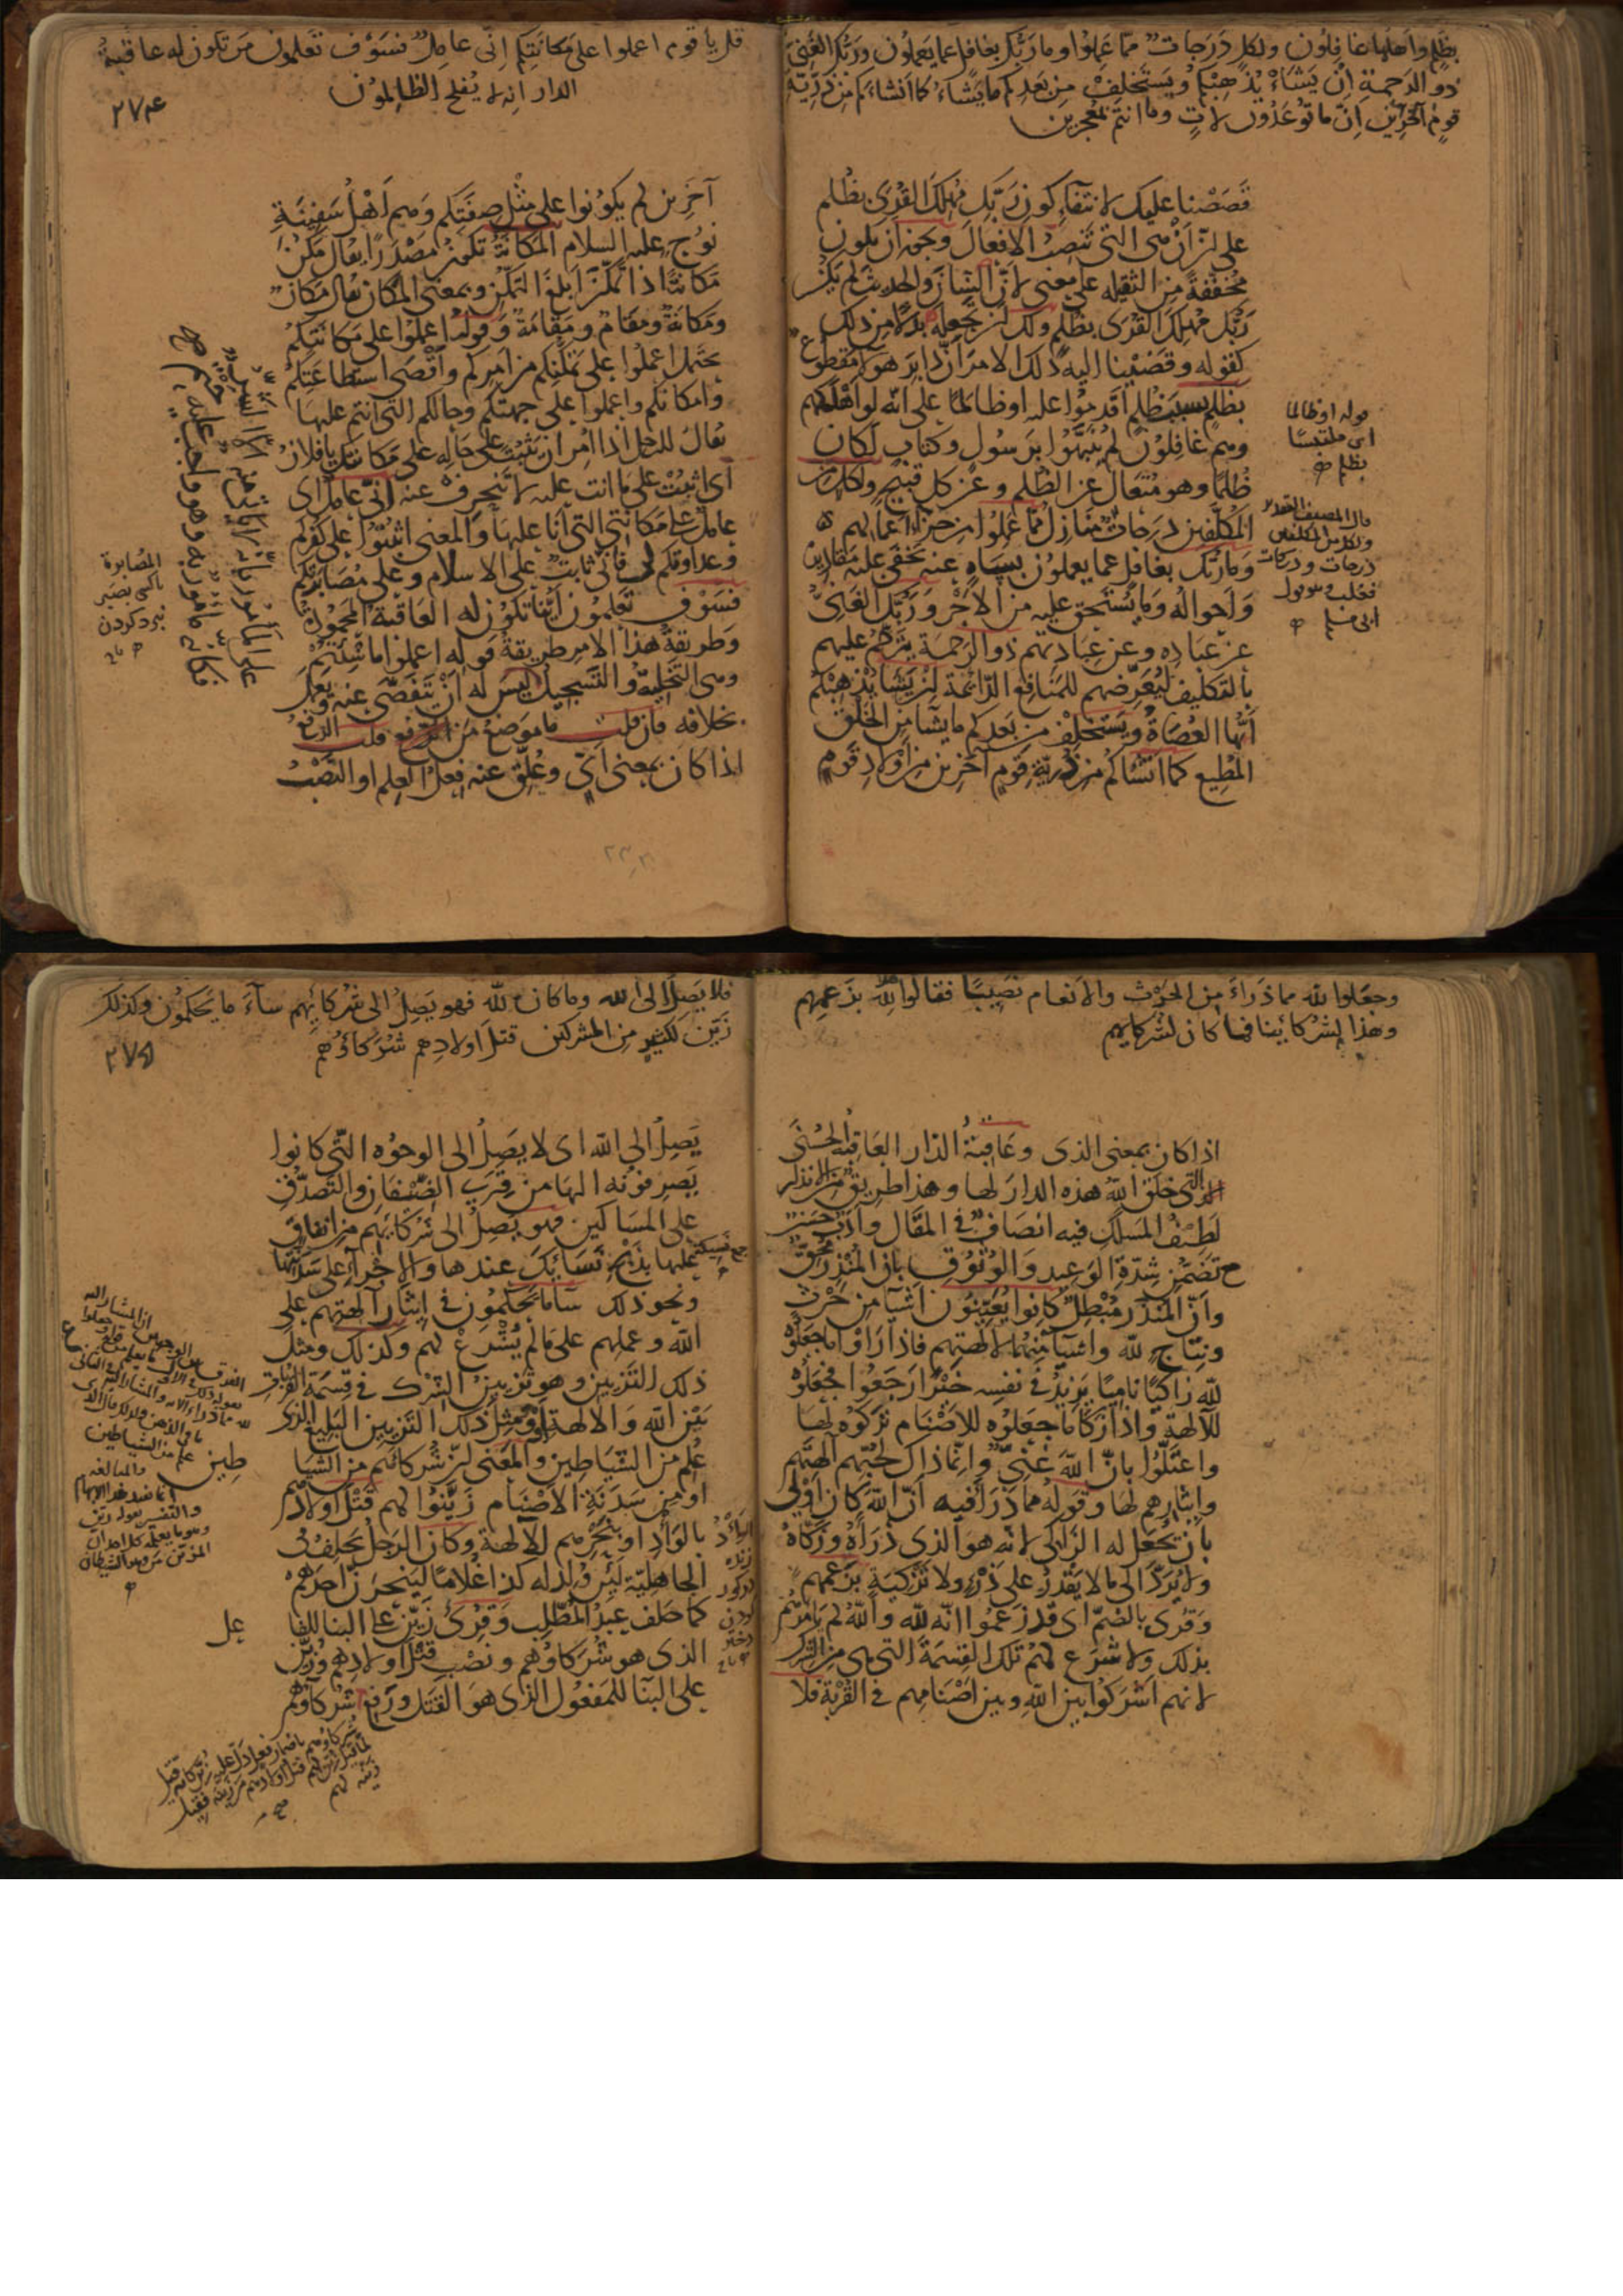 بظلم واهلها غافلون ولكل درجات مما عملوا وما ربك بغافل عما يعملون وربك الغنى
ذو الرحمة ان يشاء يذهبكم ويستخلف من بعدكم ما يشاء كما انشاءكم من ذرية
قوم آخرين ان ما توعدون لات وما انتم بمعجزين
قصصنا عليك لانتفاء كون ربك مهلك القرى بظلم
على ان أن هى التى تنصب الافعال ويجوز ان يكون
مخففة من الثقيلة على معنى لانّ الشان والحديث لم يكن
ربك مهلك القرى بظلم ولك ان تجعله بدلا من ذلك
كقوله وقضينا اليه ذلك الامر انّ دابر هولاء مقطوع
بظلم بسبب ظلم اقدموا عليه او ظالما على انه لو اهلكهم
وهم غافلون لم ينبهوا برسول وكتاب لكان
ظلما وهو متعال عن الظلم وعن كل قبيح ولكل من
المكلفين درجات منازل مما عملوا من جزاء اعمالهم
وما ربك بغافل عما يعملون بساه عنه يخفى عليه مقاديره
واحواله وما يستحق عليه من الاجر وربك الغنىّ
عن عباده وعن عبادتهم ذو الرحمة يترحّم عليهم
بالتكليف ليعرّضهم للمنافع الدائمة ان يشا يذهبكم
ايّها العصاة ويستخلف من بعدكم ما يشا من الخلق
المطيع كما انشاكم من ذرية قوم آخرين من اولاد قوم
قوله او ظالما
اى ملتبسا
بظلم
درجات ودركات
قل يا قوم اعملوا على مكانتكم انّى عامل فسوف تعلمون من تكون له عاقبة
الدار انه لا يفلح الظالمون
٢٧٤
آخرين لم يكونوا على مثل صفتكم وهم اهل سفينة
نوح عليه السلام المكانة تكون مصدرا يقال مكن
مكانة اذا تمكّن ابلغ التمكّن وبمعنى المكان يقال مكان
ومكانة ومقام ومقامة وقوله اعملوا على مكانتكم
يحتمل اعملوا على تمكّنكم من امركم واقصى استطاعتكم
وامكانكم واعملوا على جهتكم وحالكم التى انتم عليها
يقال للرجل اذا امر ان يثبت على حاله على مكانتك يا فلان
اى اثبت على ما انت عليه لا تنحرف عنه انى عامل اى
عامل على مكانتى التى انا عليها والمعنى اثبتوا على كفركم
وعداوتكم لى فانّى ثابت على الاسلام وعلى مصابرتكم
فسوف تعلمون ايّنا تكون له العاقبة المحمودة
وطريقة هذا الامر طريقة قوله اعملوا ما شئتم
وهى التخلية والتسجيل ليس له ان يتفصّى عنه ويعمل
بخلافه فان قلت ما موضع من قلت الرفع
اذا كان بمعنى اىّ وعلّق عنه فعل العلم او النصب
المصابرة
باكسى بصبر
نبرد كردن
وجعلوا لله مما ذراء من الحرث والانعام نصيبا فقالوا هذا لله بزعمهم
وهذا لشركائنا فما كان لشركايهم
اذا كان بمعنى الذى وعاقبة الدار العاقبة الحسنى
التى خلق الله هذه الدار لها وهذا طريق من الانذار
لطيف المسلك فيه انصاف فى المقال وادب حسن
تضمّن شدّة الوعيد والوثوق بان المنذر محق
وانّ المنذر مبطل كانوا يعيّنون اشيا من حرث
ونتاج لله واشيا منهما لآلهتهم فاذا راوا ما جعلوه
لله زاكيا ناميا يزيد فى نفسه خيرا رجعوا فجعلوه
للآلهة واذا زكا ما جعلوه للاصنام تركوه لها
واعتلّوا بانّ الله غنىّ وانّما ذاك لحبّهم آلهتهم
وايثارهم لها وقوله مما ذرا فيه انّ الله كان اولى
بان يجعل له الزاكى لانه هو الذى ذراه وزكّاه
ولا يردّ الى ما لا يقدر على ذرء ولا تزكية بزعمهم
وقرى بالضمّ اى قد زعموا انه لله والله لم يامرهم
بذلك ولا شرع لهم تلك القسمة التى هى من الشرك
لانهم اشركوا بين الله وبين اصنامهم فى القربة فلا
فلا يصل الى الله وما كان لله فهو يصل الى شركائهم سآء ما يحكمون وكذلك
زيّن لكثير من المشركين قتل اولادهم شركاؤهم
٢٧٥
يصل الى الله اى لا يصل الى الوجوه التى كانوا
يصرفونه اليها من قرى الضيفان والتصدق
على المساكين فهو يصل الى شركائهم من انفاق
عليها بذبح نسائك عندها والاجراء على سدنتها
ونحو ذلك سآ ما يحكمون فى ايثار آلهتهم على
الله وعملهم على ما لم يشرع لهم وكذلك ومثل
ذلك التزيين وهو تزيين الشرك فى قسمة القربان
بين الله والالهة او ومثل ذلك التزيين البليغ الذى
علم من الشياطين والمعنى ان شركائهم من الشيا
او من سدنة الاصنام زيّنوا لهم قتل اولادهم
بالواد او بنحرهم للآلهة وكان الرجل يحلف فى
الجاهليّة لئن ولد له كذا غلاما لينحرن احدهم
كما حلف عبد المطلب وقرئ زيّن على البنا للفا
الذى هو شركاوهم ونصب قتل اولادهم وزيّن
على البنآ للمفعول الذى هو القتل ورفع شركاوهم
طين
عل